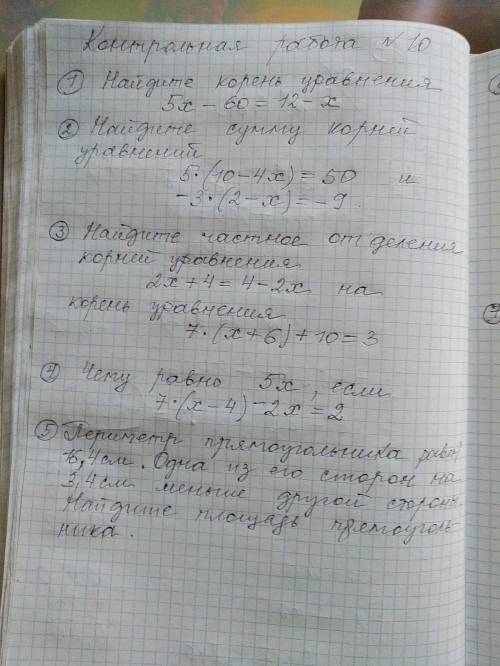 Контрольная работа №10
① Найдите корень уравнения
5x - 60 = 12 - x
② Найдите сумму корней
уравнений
5·(10-4x) = 50 и
-3·(2-x) = -9.
③ Найдите частное от деления
корней уравнения
2x + 4 = 4 - 2x на
корень уравнения
7·(x+6)+10=3
④ Чему равно 5x, если
7·(x-4)-2x=2
⑤ Периметр прямоугольника равен
16,4см. Одна из его сторон на
3,4см меньше другой стороны.
Найдите площадь прямоуголь
ника.